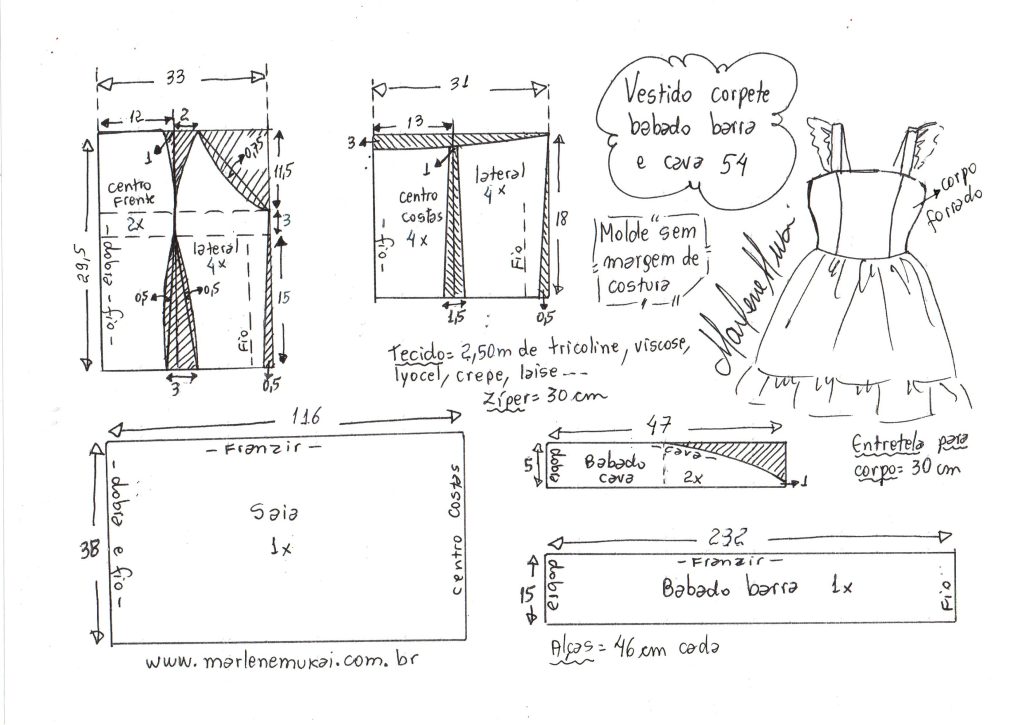 33
12
2
1
0,75
11,5
3
centro
Frente
2x
lateral
4x
29,5
- dobra - fio -
0,5
0,5
Fio
15
3
0,5
31
13
3
1
lateral
4x
centro
costas
4x
- fio -
Fio
18
1,5
0,5
Vestido corpete
babado barra
e cava 54
Molde sem
margem de
costura
corpo
forrado
Marlene Mukai
Tecido= 2,50m de tricoline, viscose,
lyocel, crepe, laise ---
Zíper= 30 cm
Entretela para
corpo= 30 cm
116
- Franzir -
38
- dobra e fio -
Saia
1x
centro costas
47
5
dobra
Babado
cava
- cava -
2x
1
232
- Franzir -
15
dobra
Babado barra 1x
Fio
Alças= 46 cm cada
www.marlenemukai.com.br